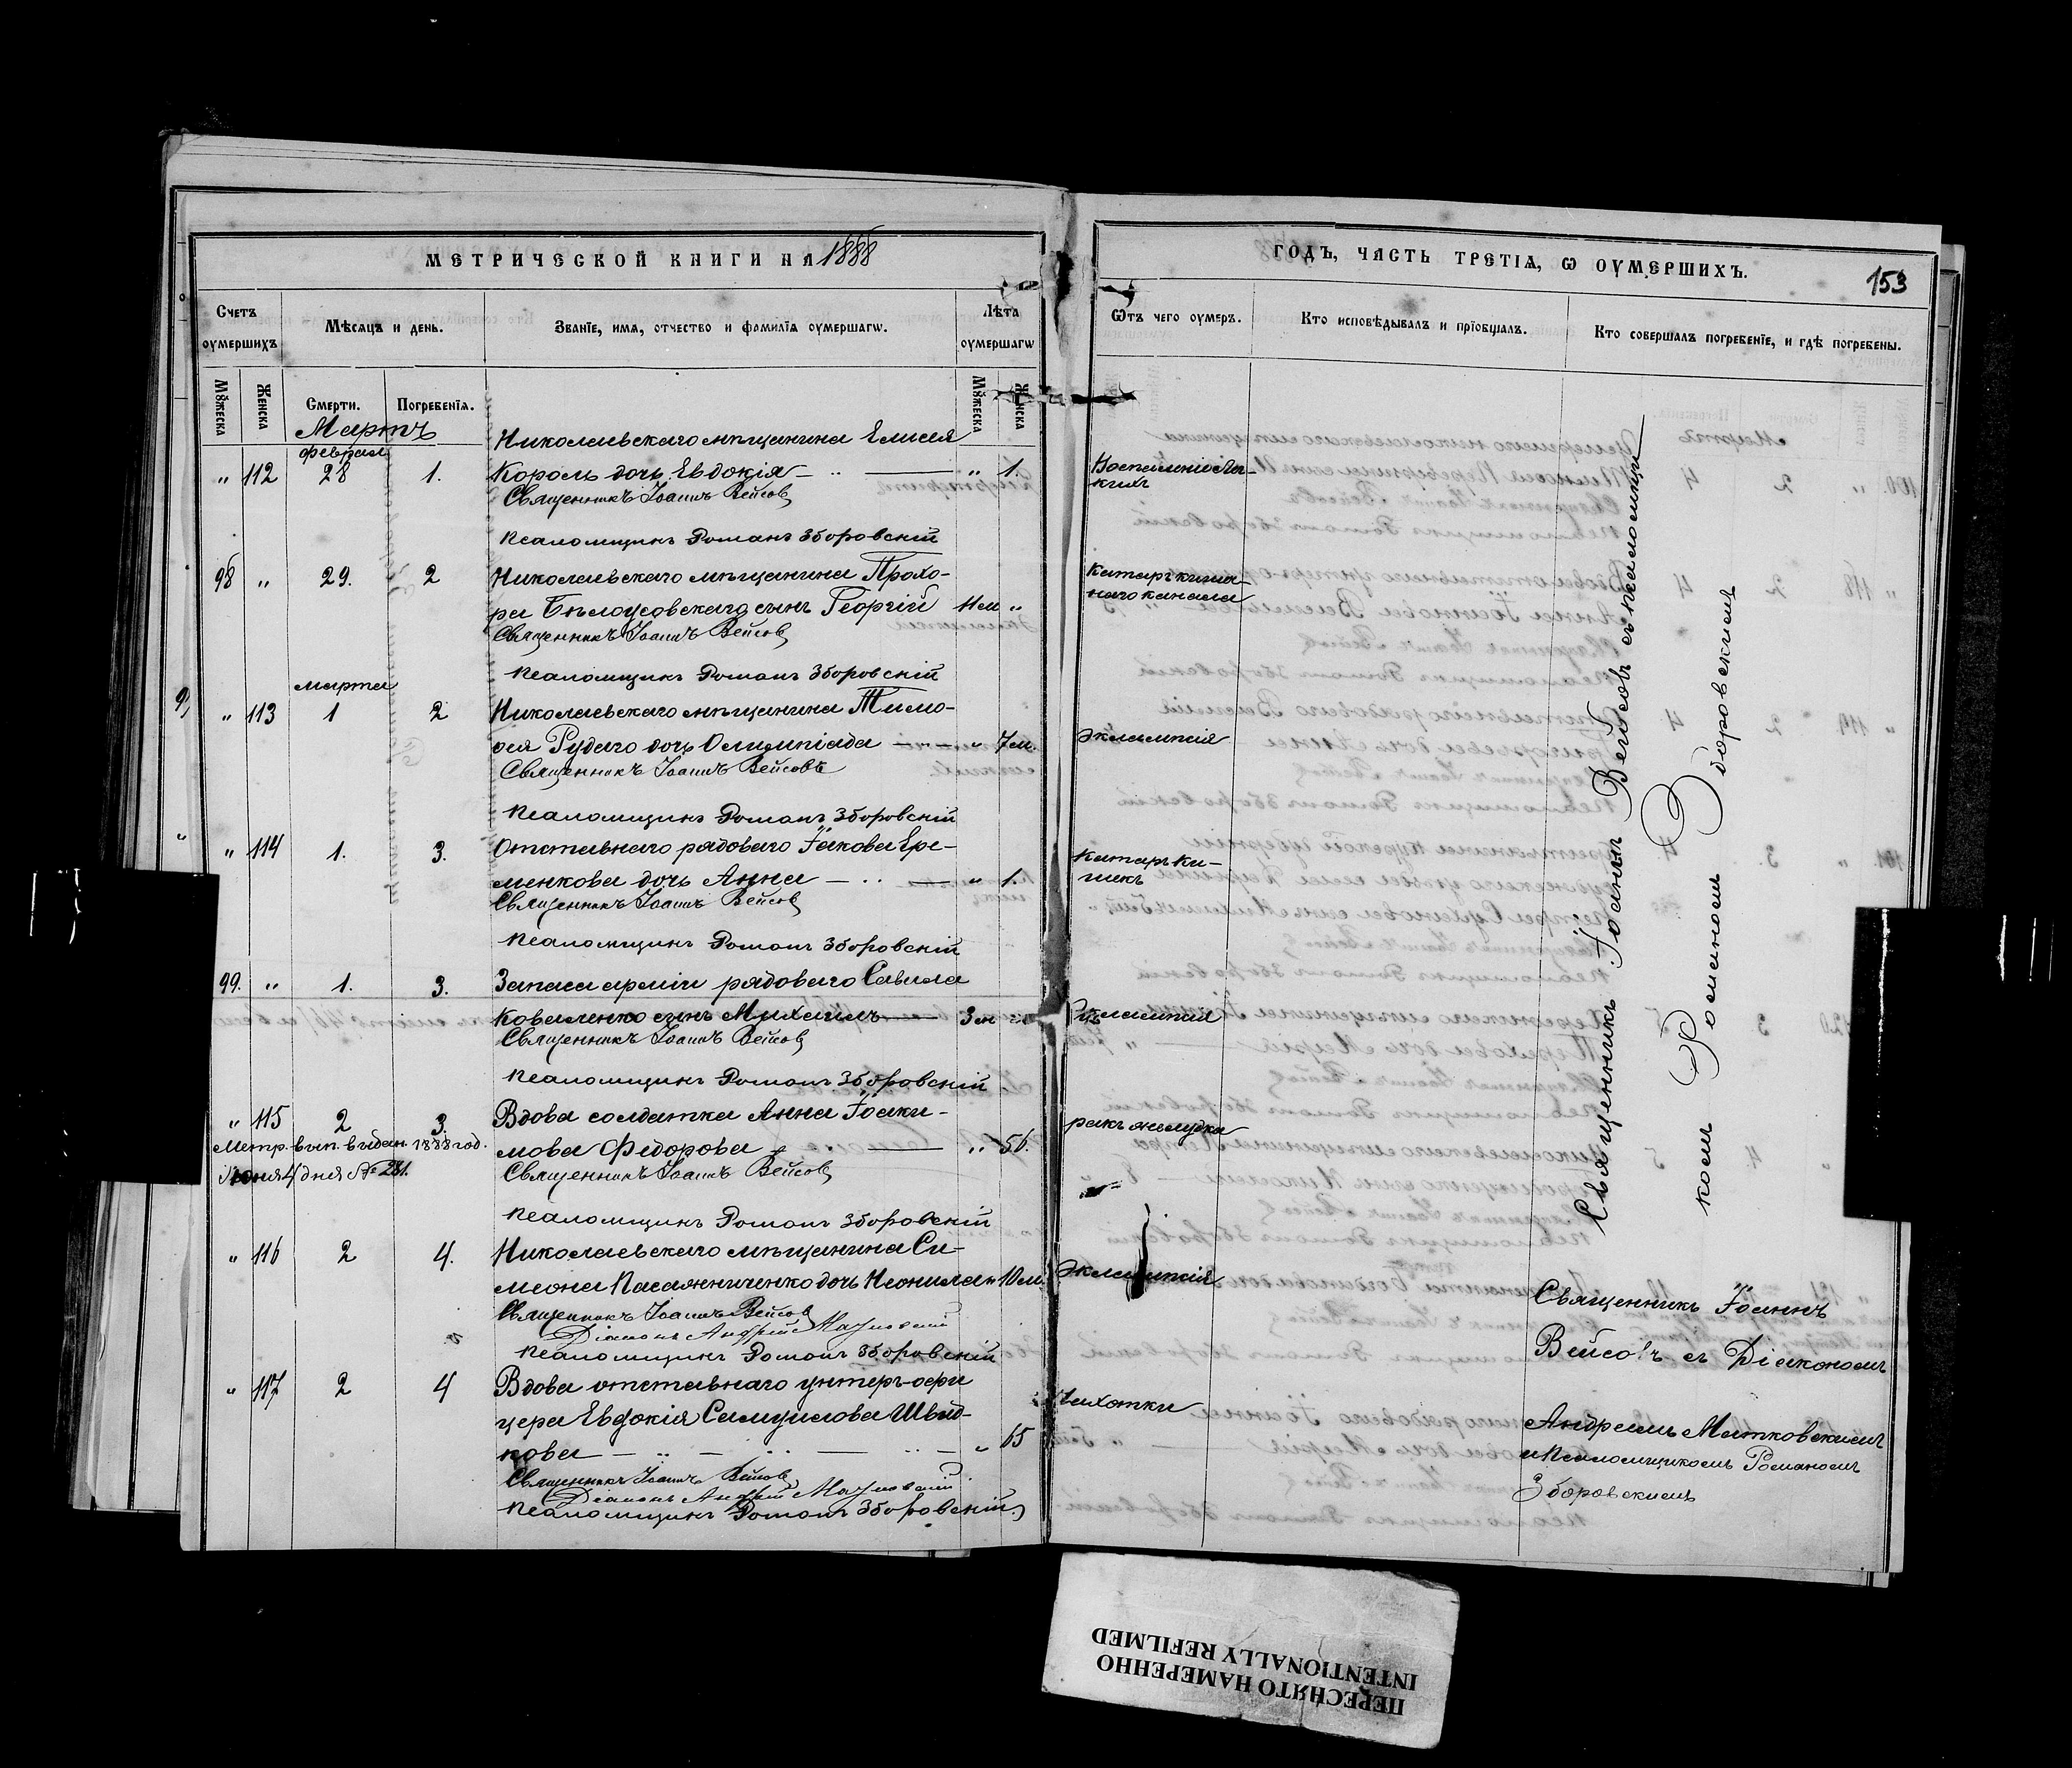 МЕТРИЧЕСКОЙ КНИГИ НА 1888
ГОДЪ, ЧАСТЬ ТРЕТІѦ, Ѡ ОУМЕРШИХЪ.
153
Счетъ оумершихъ
Мѣсяцъ и день.
Званіе, имѧ, отчество и фамиліѧ оумершагѡ.
Лѣта оумершагѡ
Ѿтъ чего оумеръ.
Кто исповѣдывалъ и пріобщалъ.
Кто совершалъ погребеніе, и гдѣ погребены.
Мꙋжеска
Женска
Смерти.
Погребеніѧ.
Мꙋжеска
Женска
Мартъ
Николаевскаго мѣщанина Елисея
февраля
„ 112 28 1. Король дочь Евдокія — „ 1. Воспаленіе
Священникъ Іоаннъ Вейсовъ
Псаломщикъ Романъ Зборовскій
98 „ 29. 2 Николаевскаго мѣщанина Прохо- Катарръ кишеч-
ра Бѣлоусовскаго сынъ Георгій 11 м „ наго канала
Священникъ Іоаннъ Вейсовъ
Псаломщикъ Романъ Зборовскій
марта
„ 113 1 2 Николаевскаго мѣщанина Тимо-
ѳея Рудаго дочь Олимпіада — „ — „ 7 м. Эклампсія
Священникъ Іоаннъ Вейсовъ
Псаломщикъ Романъ Зборовскій
„ 114 1. 3. Отставнаго рядоваго Іакова Ере- Катарръ ки-
менкова дочь Анна — „ — „ 1. шекъ
Священникъ Іоаннъ Вейсовъ
Псаломщикъ Романъ Зборовскій
99. „ 1. 3. Запаса арміи рядоваго Савила
Коваленко сынъ Михаилъ — 3 м „ Эклампсія
Священникъ Іоаннъ Вейсовъ
Псаломщикъ Романъ Зборовскій
„ 115 2 3. Вдова солдатка Анна Іоаки- ракъ желудка
Метр. вып. выдан. 1888 год. мова Федорова — „ 56.
Іюня 4 дня № 281.
Священникъ Іоаннъ Вейсовъ
Псаломщикъ Романъ Зборовскій
„ 116 2 4. Николаевскаго мѣщанина Си- Эклампсія
меона Касаяниченко дочь Неонила „ 10 м.
Священникъ Іоаннъ Вейсовъ
Діаконъ Андрей Матковскій
Псаломщикъ Романъ Зборовскій
„ 117 2 4 Вдова отставнаго унтеръ-офи чахотки
цера Евдокія Самуилова Швид-
кова — „ 65
Священникъ Іоаннъ Вейсовъ
Діаконъ Андрей Матковскій
Псаломщикъ Романъ Зборовскій
Священникъ Іоаннъ Вейсовъ съ псаломщи
комъ Романомъ Зборовскимъ
Священникъ Іоаннъ
Вейсовъ съ Діакономъ
Андреемъ Матковскимъ
и Псаломщикомъ Романомъ
Зборовскимъ
ПЕРЕСНЯТО НАМЕРЕННО
INTENTIONALLY REFILMED